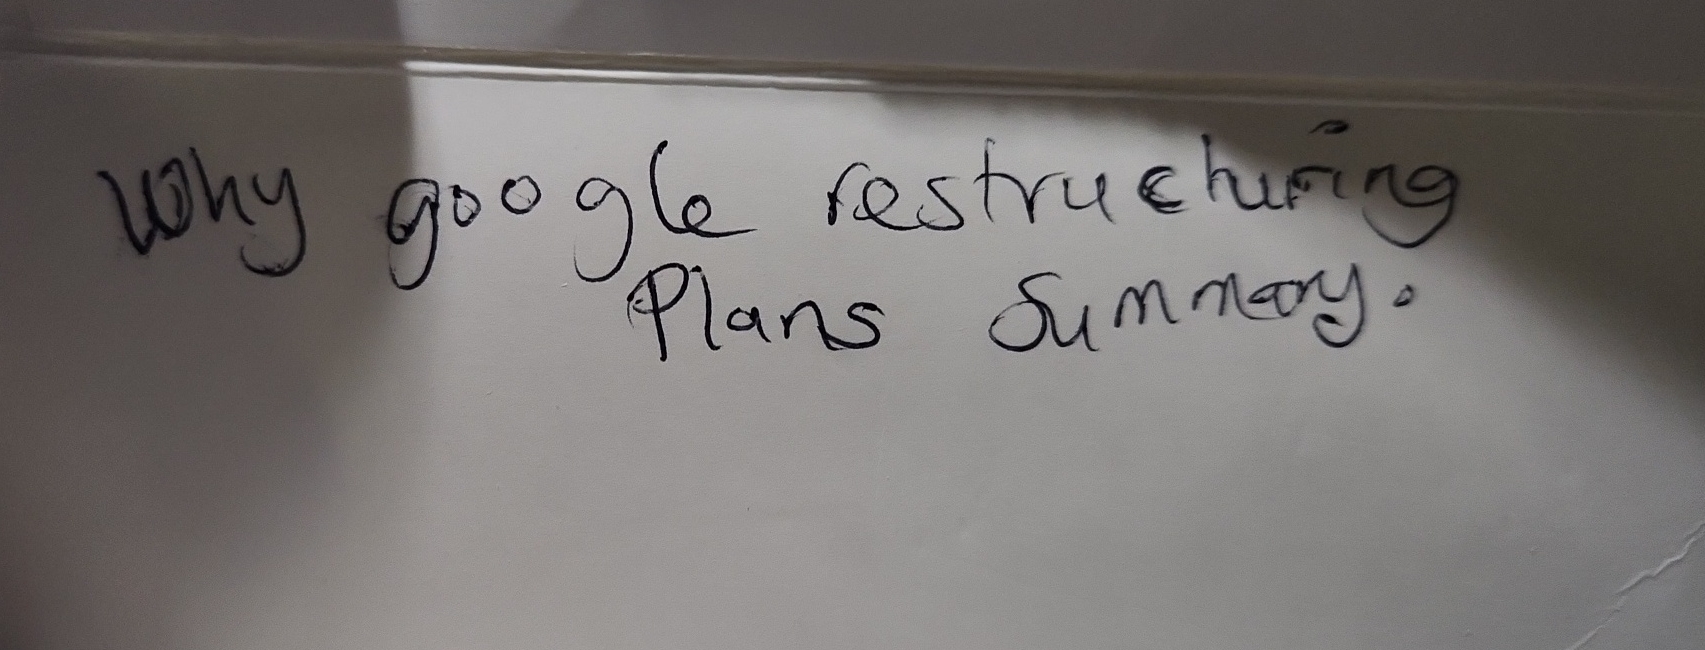 Why google restructuring
Plans Summary.